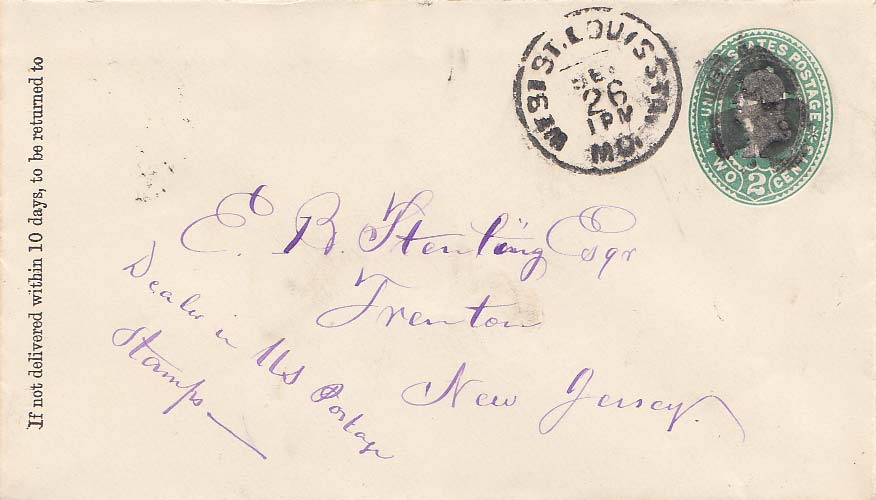 If not delivered within 10 days, to be returned to
WEST ST. LOUIS STA.
26
1 PM
MO.
UNITED STATES POSTAGE
TWO 2 CENTS
E. B. Sterling Esqr
Trenton
New Jersey
Dealer in US Postage
Stamps